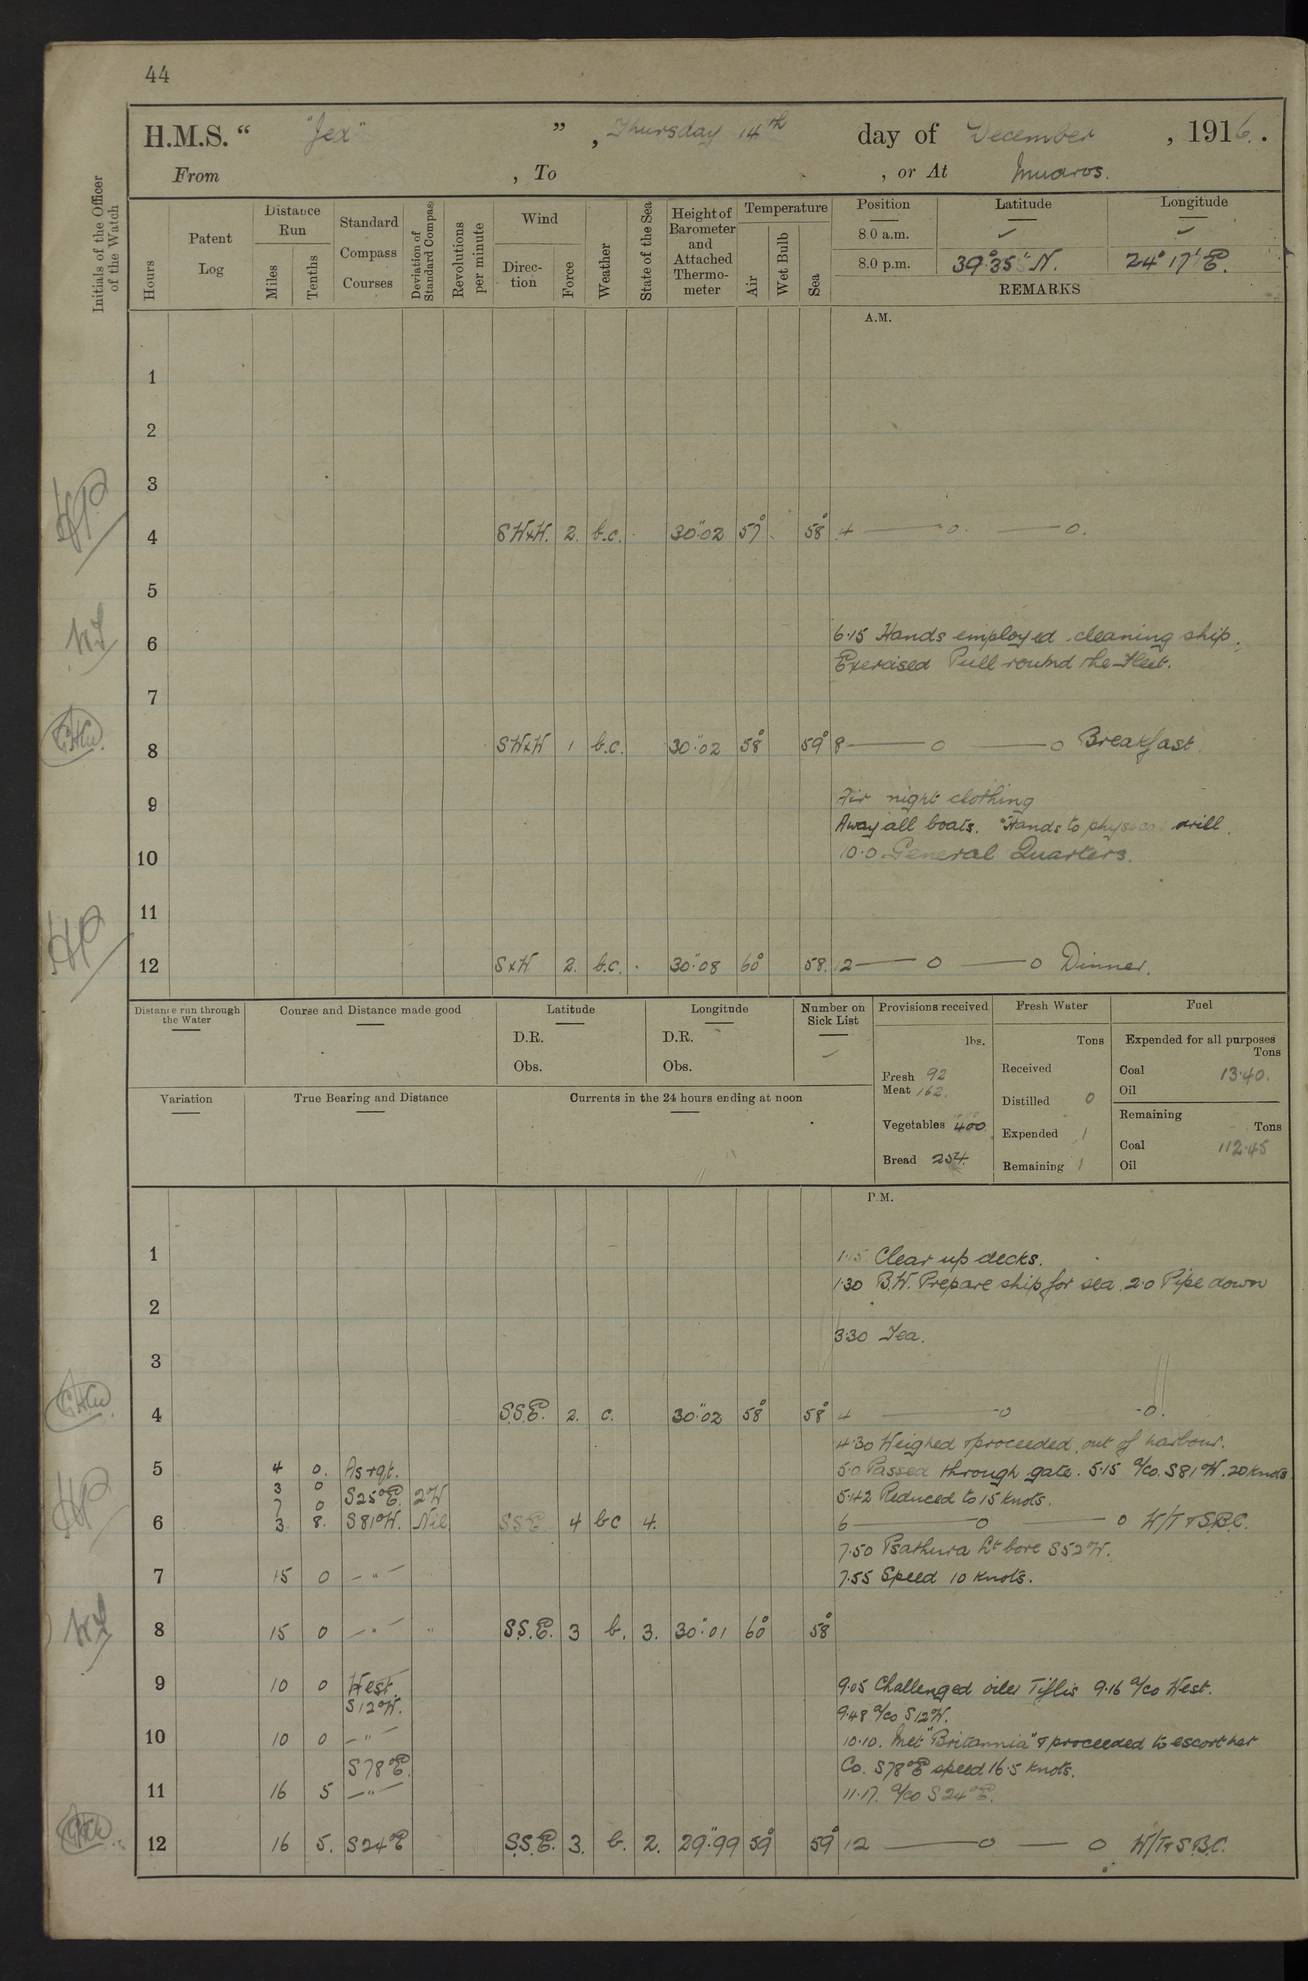 44
H.M.S. " "Jex" " , Thursday 14th day of December , 1916. .
From , To , or At Mudros.
Initials of the Officer of the Watch
Hours
Patent Log
Distance Run
Miles
Tenths
Standard Compass Courses
Deviation of Standard Compass
Revolutions per minute
Wind
Direc-tion
Force
Weather
State of the Sea
Height of Barometer and Attached Thermo-meter
Temperature
Air
Wet Bulb
Sea
Position Latitude Longitude
8.0 a.m. ✓ ✓
8.0 p.m. 39°35" N. 24° 17' E.
REMARKS
A.M.
1
2
3
4 SWxW. 2. b.c. 30"02 57° 58° 4 —— 0. —— 0.
5
6 6.15 Hands employed cleaning ship.
Exercised Pull round the Fleet.
7
8 SWxW 1 b.c. 30"02 58° 59° 8 —— 0 —— 0 Breakfast.
Air night clothing
9
Away all boats. Hands to physical drill.
10 10.0 General Quarters.
11
12 SxW 2. b.c. 30"08 60° 58. 12 —— 0 —— 0 Dinner.
Distance run through the Water
Course and Distance made good
Latitude
D.R.
Obs.
Longitude
D.R.
Obs.
Number on Sick List
Provisions received
lbs.
Fresh 92
Meat 162.
Vegetables 400.
Bread 254.
Fresh Water
Tons
Received
Distilled 0
Expended 1
Remaining 1
Fuel
Expended for all purposes
Tons
Coal 13.40.
Oil
Remaining
Tons
Coal 112.45
Oil
Variation
True Bearing and Distance
Currents in the 24 hours ending at noon
P.M.
1 1.15 Clear up decks.
1.30 B.W. Prepare ship for sea. 2.0 Pipe down
2
3.30 Tea.
3
4 S.S.E. 2. c. 30"02 58° 58° 4 —— 0 —— 0.
4.30 Weighed & proceeded out of harbour.
5 4 0. As rqt. 5.0 Passed through gate. 5.15 a/co. S81°W. 20 knots
3 0
7 0 S25°E. 2W 5.42 Reduced to 15 knots.
6 3 8. S81°W. Nil SSE 4 bc 4. 6 —— 0 —— 0 W/T & S.B.C.
7.50 Psathura Lt bore S52°W.
7 15 0 —"— 7.55 Speed 10 knots.
8 15 0 —"— " S.S.E. 3 b. 3. 30"01 60° 58°
9 10 0 West. 9.05 Challenged oiler Tiflis 9.16 a/co West.
S12°W. 9.48 a/co S12W.
10 10 0 —"— 10.10. Met "Britannia" & proceeded to escort her
S78°E. Co. S78°E speed 16.5 knots.
11 16 5 —"— 11.17. a/co S24°E.
12 16 5. S24°E S.S.E. 3. b. 2. 29"99 59° 59° 12 —— 0 —— 0 W/T & S.B.C.